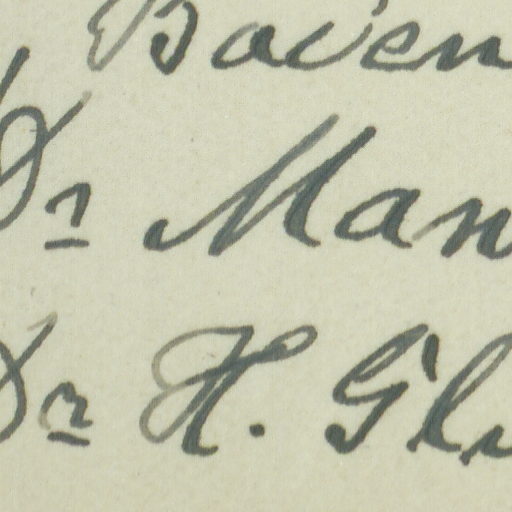 Baden
Dr Man
Dr H. Gl